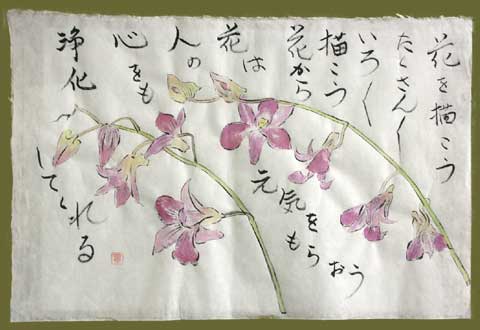 花を描こう
たくさん〳〵
いろ〳〵
描こう
花から
元気を
もらおう
花は
人の
心をも
浄化
してくれる